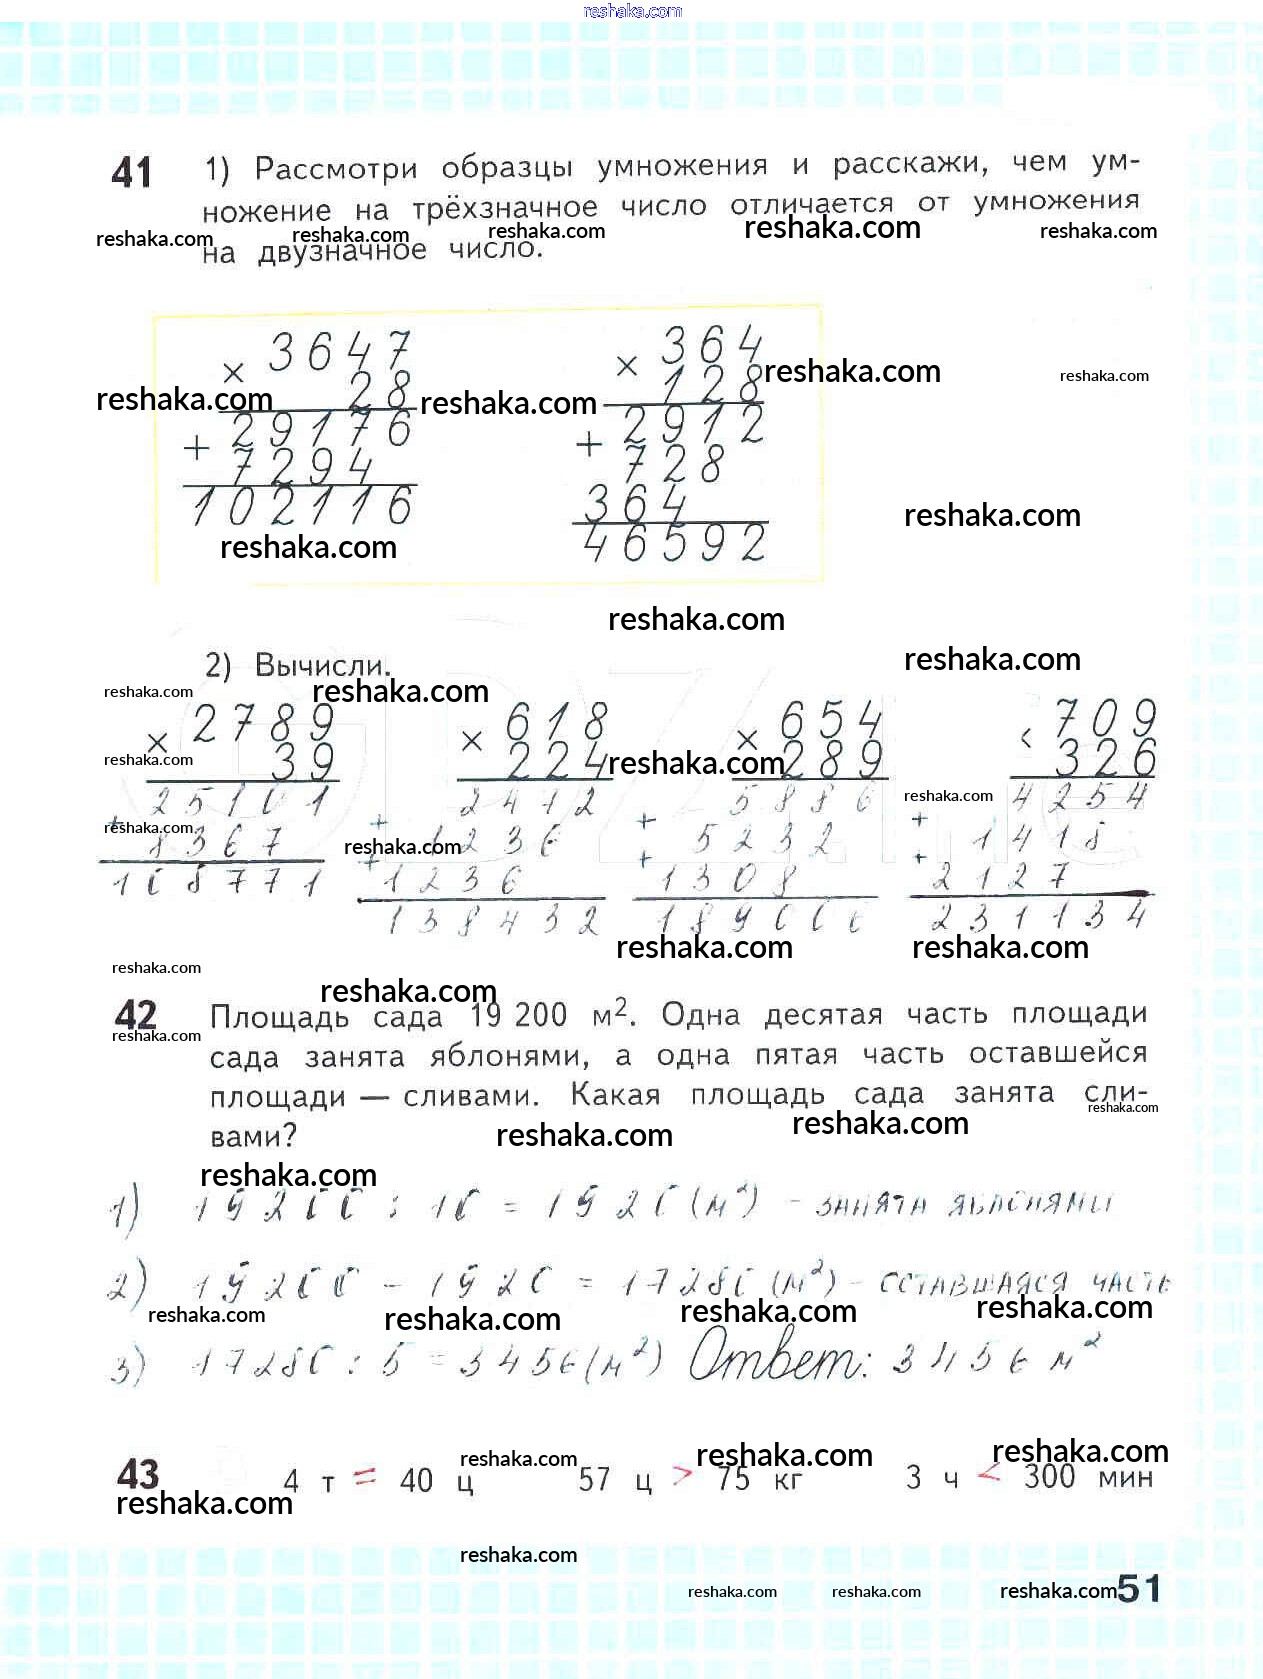 reshaka.com
41 1) Рассмотри образцы умножения и расскажи, чем ум-
ножение на трёхзначное число отличается от умножения
reshaka.com reshaka.com reshaka.com reshaka.com reshaka.com
на двузначное число.
× 3647 × 364
28 128
reshaka.com reshaka.com reshaka.com reshaka.com
+ 29176 + 2912
7294 728
102116 364
46592
reshaka.com reshaka.com
reshaka.com
2) Вычисли. reshaka.com
reshaka.com reshaka.com
× 2789 × 618 × 654 × 709
39 224 289 326
reshaka.com reshaka.com
25101 2472 5886 4254
reshaka.com
+ 8367 + 1236 + 5232 + 1418
reshaka.com reshaka.com
108771 + 1236 + 1308 + 2127
138432 189006 231134
reshaka.com reshaka.com
reshaka.com reshaka.com
42 Площадь сада 19 200 м². Одна десятая часть площади
reshaka.com
сада занята яблонями, а одна пятая часть оставшейся
площади — сливами. Какая площадь сада занята сли-
reshaka.com
вами?
reshaka.com reshaka.com
reshaka.com
1) 19200 : 10 = 1920 (м²) - занята яблонями
2) 19200 - 1920 = 17280 (м²) - оставшаяся часть
reshaka.com reshaka.com reshaka.com reshaka.com
3) 17280 : 5 = 3456 (м²) Ответ: 3456 м²
reshaka.com reshaka.com reshaka.com
43 4 т = 40 ц 57 ц > 75 кг 3 ч < 300 мин
reshaka.com
reshaka.com
reshaka.com reshaka.com reshaka.com 51